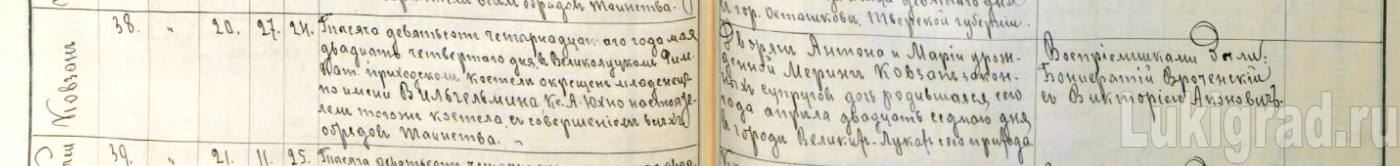 обрядом Таинства.
и гор. Осташкови, Тверской губернии.
Ковзанъ
38. " 20. 27. 24.
Тысяча девятьсотъ четырнадцатаго года мая
двадцать четвертаго дня, в Великолуцкомъ Рим.
Кат. приходскомъ костелѣ окрещенъ младенецъ
по имени Вильгельмина Кс. А. Юхно настояте-
лемъ тогожъ костела съ совершеніемъ всѣхъ
обрядовъ Таинства.
Дворянъ Антона и Маріи урож-
денной Меринъ Ковзанъ закон-
ныхъ супруговъ дочь родившаяся сего
года апрѣля двадцать седьмаго дня
в городѣ Велик. Лукахъ сего прихода
Воспріемниками были:
Бонифатій Вроченскій
съ Викторіею Аконовичъ.
39. " 21. 11. 25.
Тысяча девятьсотъ
Lukigrad.ru